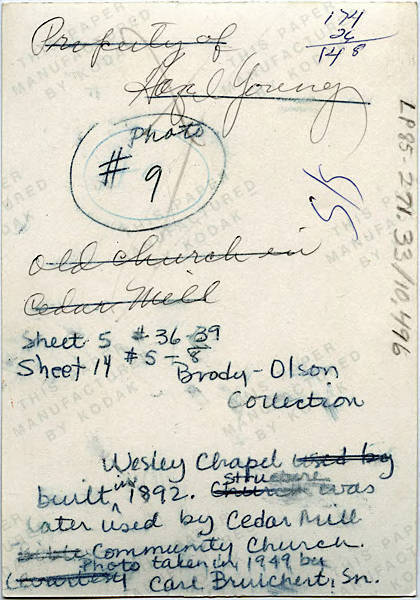 Property of
Hazel Young
174
26
148
Photo
# 9
5/5
LP85-271.33/10,496
old church in
Cedar Mill
Sheet 5 #36-39
Sheet 14 #5-8
Brody-Olson
Collection
Wesley Chapel used by
built in 1892. Church structure was
later used by Cedar Mill
Bible Community Church.
Photo taken in 1949 by
(Courtesy Carl Bruichert, Sr.
THIS PAPER
MANUFACTURED
BY KODAK